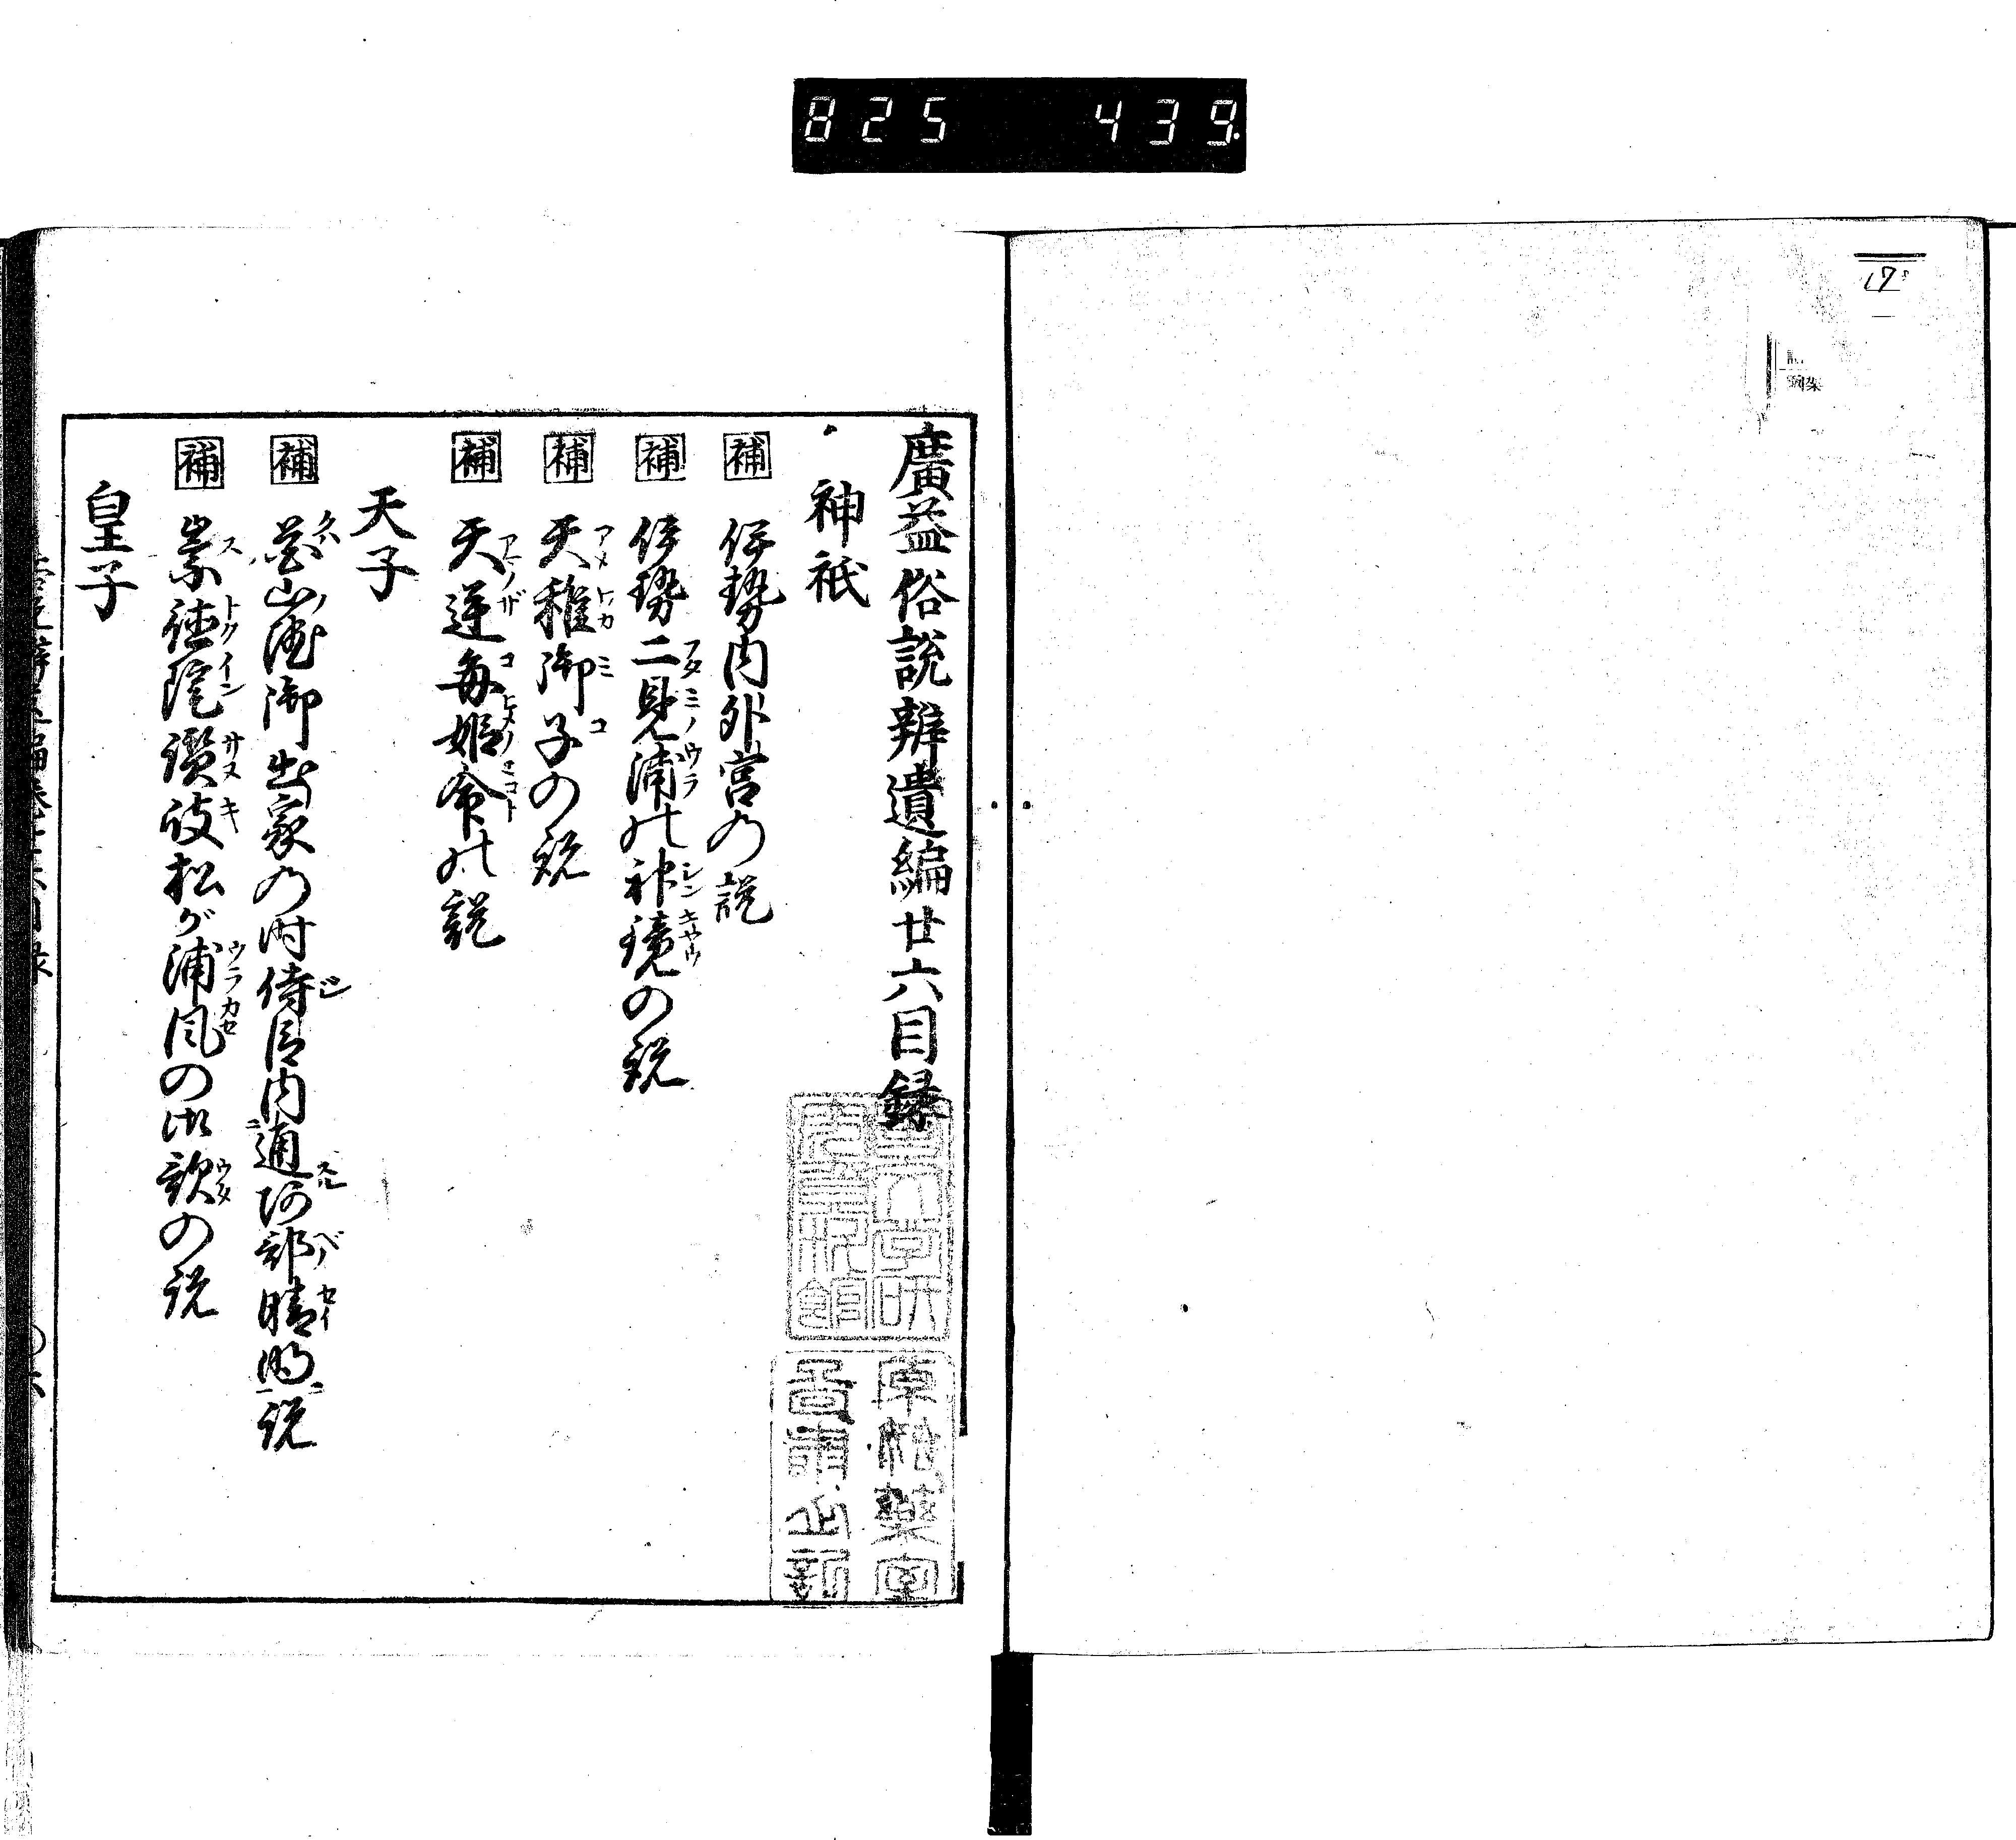 825 439
廣益俗說辨遺編廿六目録
神祇
補 伊勢内外宮の説
補 伊勢二見浦の神鏡の説
補 天稚御子の説
補 天逆毎姫命の説
天子
補 花山院御出家の時侍臣内通阿部晴明説
補 崇徳院讃岐松が浦風の御歌の説
皇子